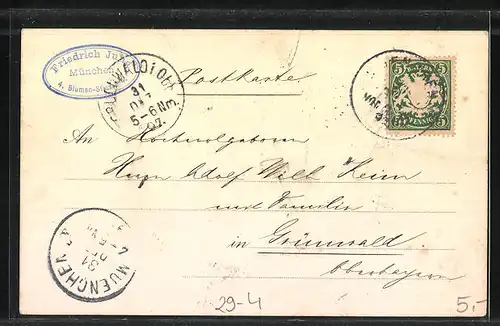 Friedrich Ju
München
4, Blumen-St
GRÜNWALD I OBB
31
5-6 Nm
07.
Postkarte
BAYERN
5 5
PFENNIG
An Hochwolgeboren
Herrn Adolf Wilh Heim
und Familie
in Grünwald
Oberbayern
MUENCHEN
31
29-4
5,-